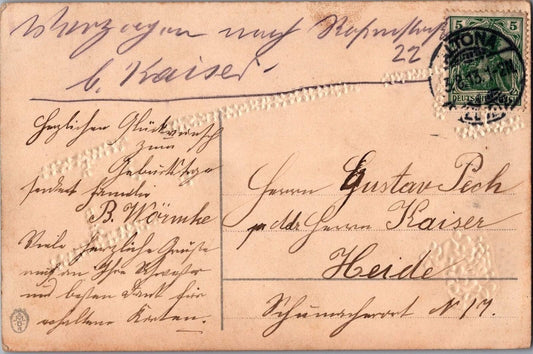 Verzogen nach Rosenstraße
22
b. Kaiser.
5 5
ALTONA
DEUTSCHES REICH
Herzlichen Glückwunsch
zum
Geburtstage
sendet Familie
B. Wörmke
Viele herzliche Grüße
auch an Ihre
und besten Dank für
erhaltene Karten.
Herrn Gustav Pech
Herrn Kaiser
Heide
N 17.